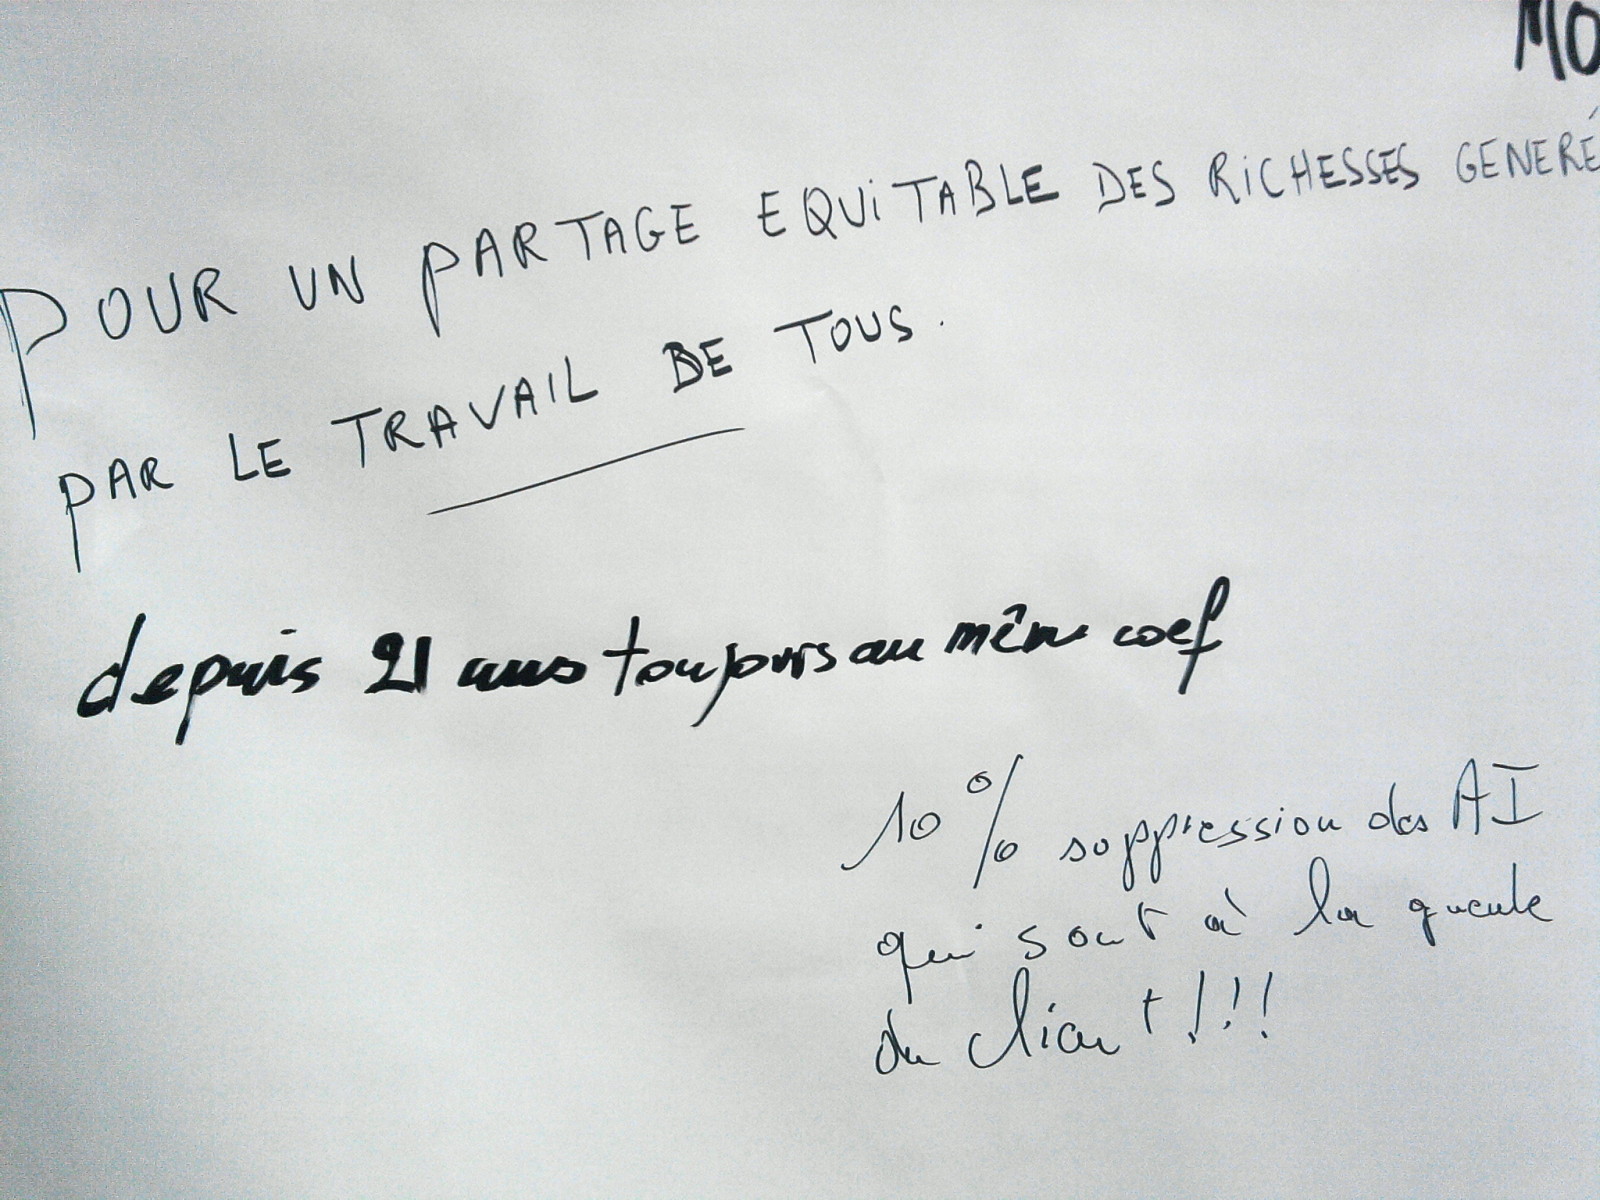 MO
POUR UN PARTAGE EQUITABLE DES RICHESSES GENERÉ
PAR LE TRAVAIL DE TOUS.
depuis 21 ans toujours au même coef
10% suppression des AI
qui sont à la gueule
du client!!!